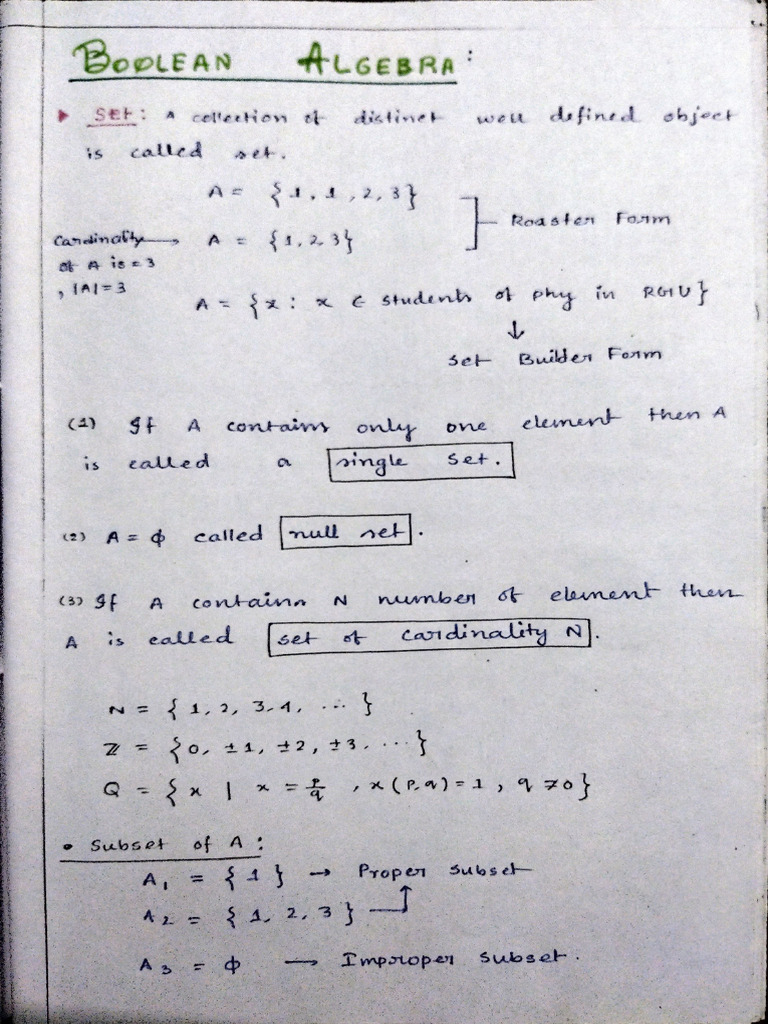 BOOLEAN ALGEBRA:
▸ Set: A collection of distinct well defined object
is called set.
A = {1, 1, 2, 3}
Roaster Form
Cardinality → A = {1, 2, 3}
of A is = 3
, |A| = 3
A = {x : x ∈ students of phy in RGIU}
↓
set Builder Form
(1) If A contains only one element then A
is called a single set.
(2) A = ϕ called null set.
(3) If A contains N number of element then
A is called set of cardinality N.
N = {1, 2, 3, 4, ... }
ℤ = {0, ±1, ±2, ±3, ... }
Q = {x | x = p/q , x(p,q) = 1, q ≠ 0}
• Subset of A:
A₁ = {1} → Proper subset
A₂ = {1, 2, 3}
A₃ = ϕ → Improper subset.